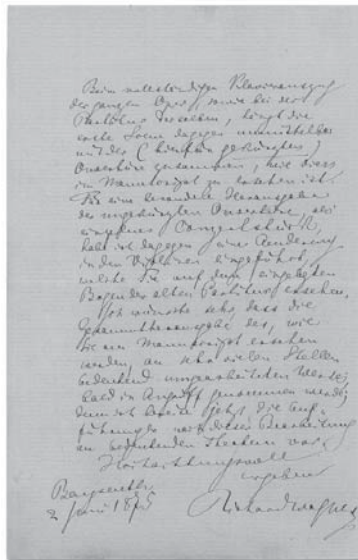 Beim vollständigen Klavierauszug
der ganzen Oper, sowie bei der
Partitur derselben, hängt die
erste Scene dagegen unmittelbar
mit der (hierfür gekürzten)
Ouvertüre zusammen, wie diess
im Manuscript zu ersehen ist.
Für eine besondere Herausgabe
der ungekürzten Ouvertüre, als
einzelnes Conzertstück,
habe ich dagegen eine Aenderung
in den Violinen eingeführt,
welche Sie auf dem eingelegten
Bogen der alten Partitur ersehen.
Ich wünsche sehr, dass die
Gesammtherausgabe des, wie
Sie am Manuscript ersehen
werden, an sehr vielen Stellen
bedeutend umgearbeiteten Werkes,
bald in Angriff genommen werde;
denn ich bereite jetzt die Auf-
führung nach dieser Bearbeitung
an bedeutenden Theatern vor.
Hochachtungsvoll
ergebener
Bayreuth.
2 Juni 1875
Richard Wagner